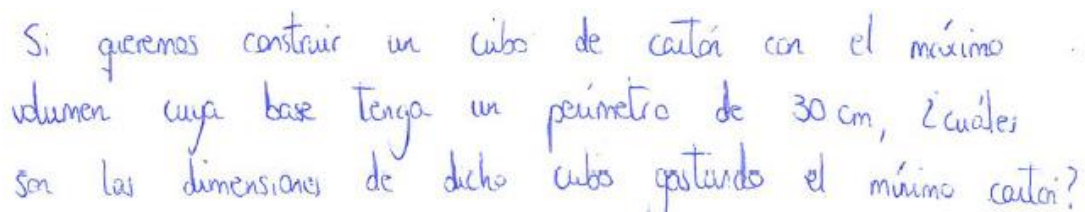 Si queremos construir un cubo de cartón con el máximo
volumen cuya base tenga un perímetro de 30 cm, ¿cuáles
son las dimensiones de dicho cubo gastando el mínimo cartón?